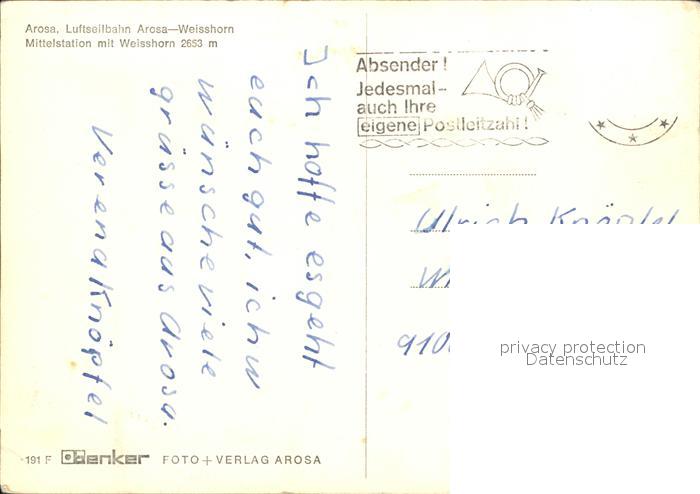 Arosa, Luftseilbahn Arosa—Weisshorn
Mittelstation mit Weisshorn 2653 m
Ich hoffe es geht
euch gut, ich w
wünsche viele
grüsse aus Arosa.
Verena Knöpfel
Absender!
Jedesmal-
auch Ihre
eigene Postleitzahl!
Ulrich Knöpfel
910
privacy protection
Datenschutz
191 F denker FOTO+VERLAG AROSA